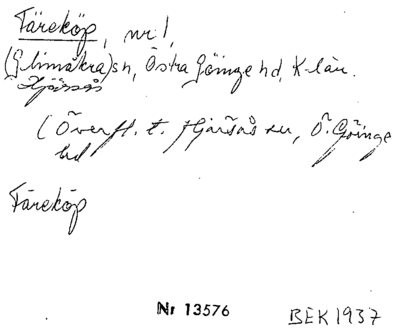 Färeköp, nr 1,
(Glimåkra)sn, Östra Göinge hd, K-län.
Hjärsås
(Överfl. t. Hjärsås sn, Ö. Göinge
hd
Färeköp
Nr 13576
BEK 1937